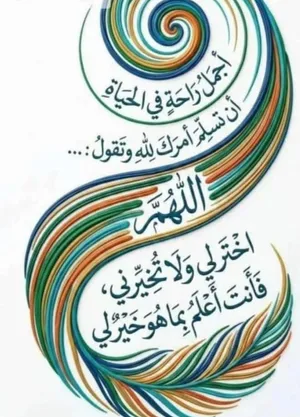 أجملُ رَاحَةٍ في الحَيَاةِ
أن تسلِّم أمرَكَ لِلهِ وتَقولُ : ...
اللَّهُمَّ
اخْتَرلي وَلَا تُخَيِّرني،
فَأَنتَ أَعْلَم بِمَا هُوَ خَيْرٌ لي